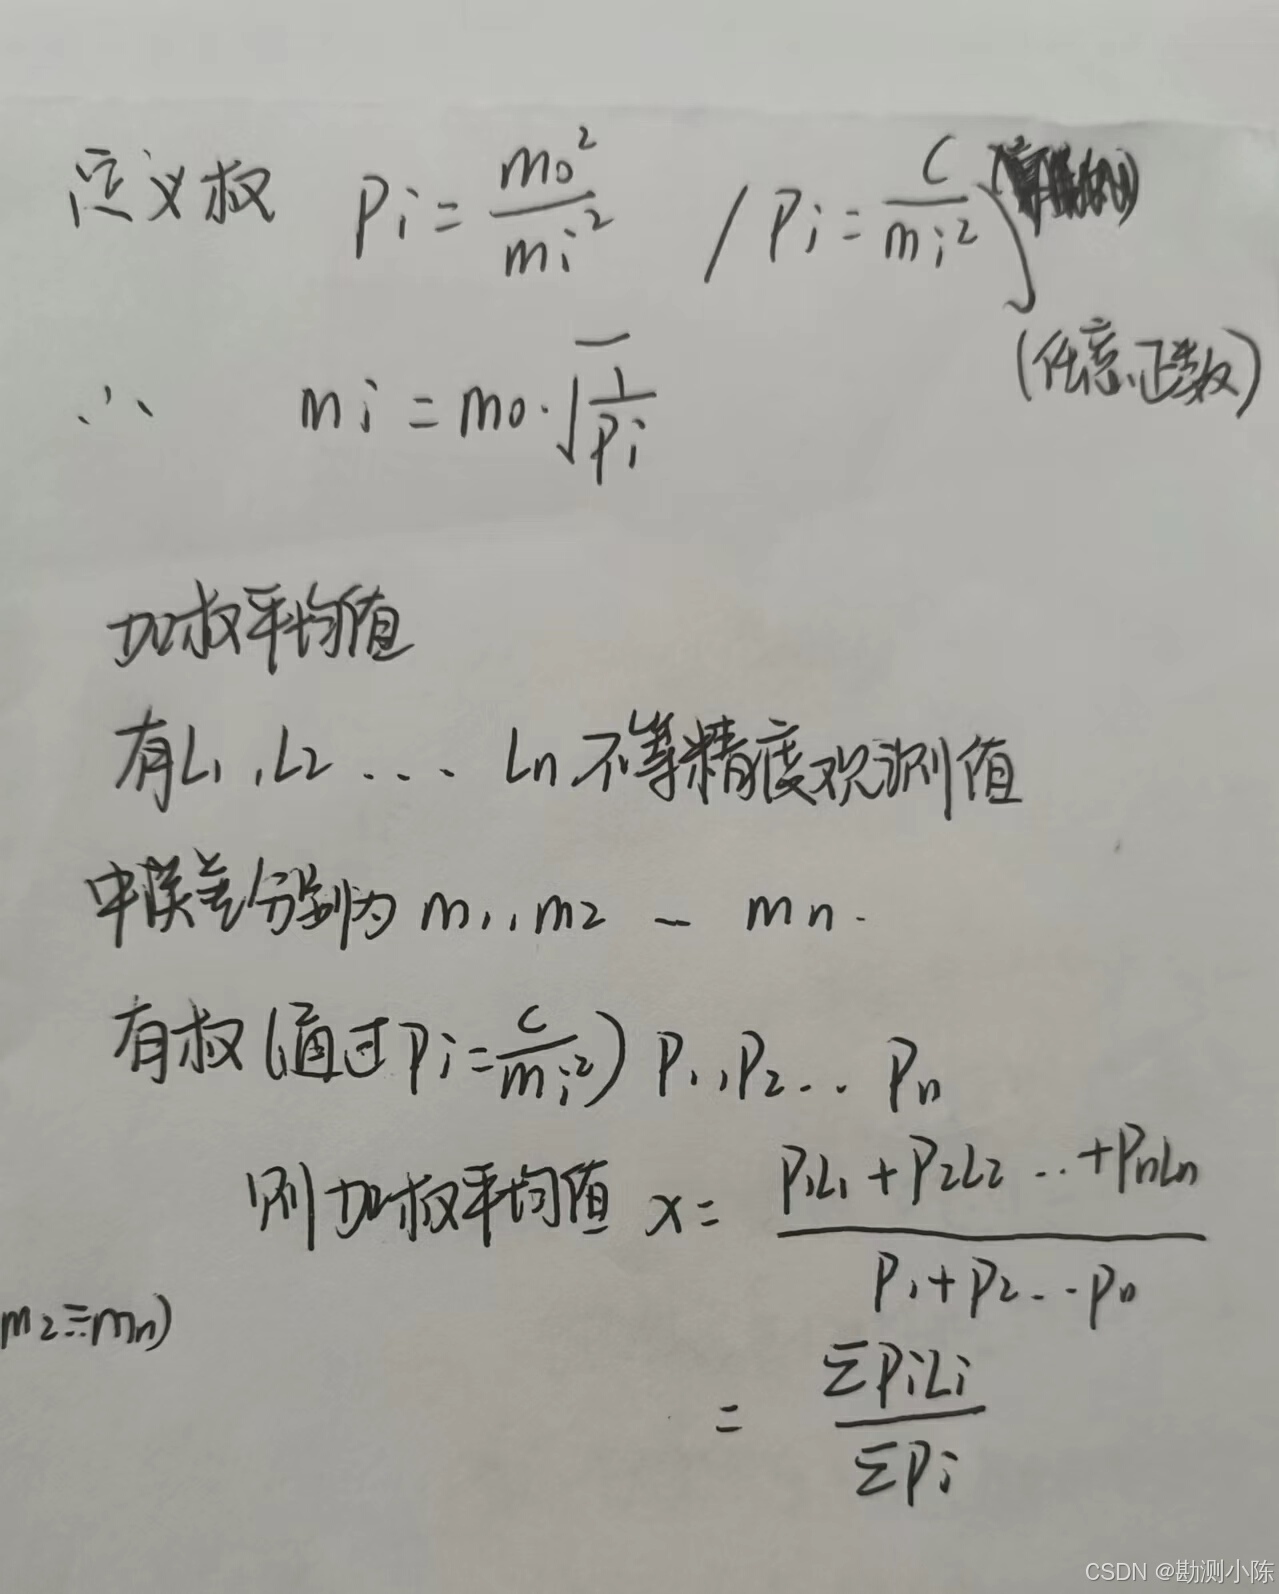 定义权 Pi = m0²/mi² / Pi = C/mi²
(任意正数)
∴ mi = m0·√(1/Pi)
加权平均值
有L1,L2 ... Ln不等精度观测值
中误差分别为 m1,m2 - mn.
有权(通过Pi=C/mi²) P1,P2... Pn
则加权平均值 x= (P1L1+P2L2...+PnLn)/(P1+P2...Pn)
m2...mn)
= ΣPiLi/ΣPi
CSDN @勘测小陈